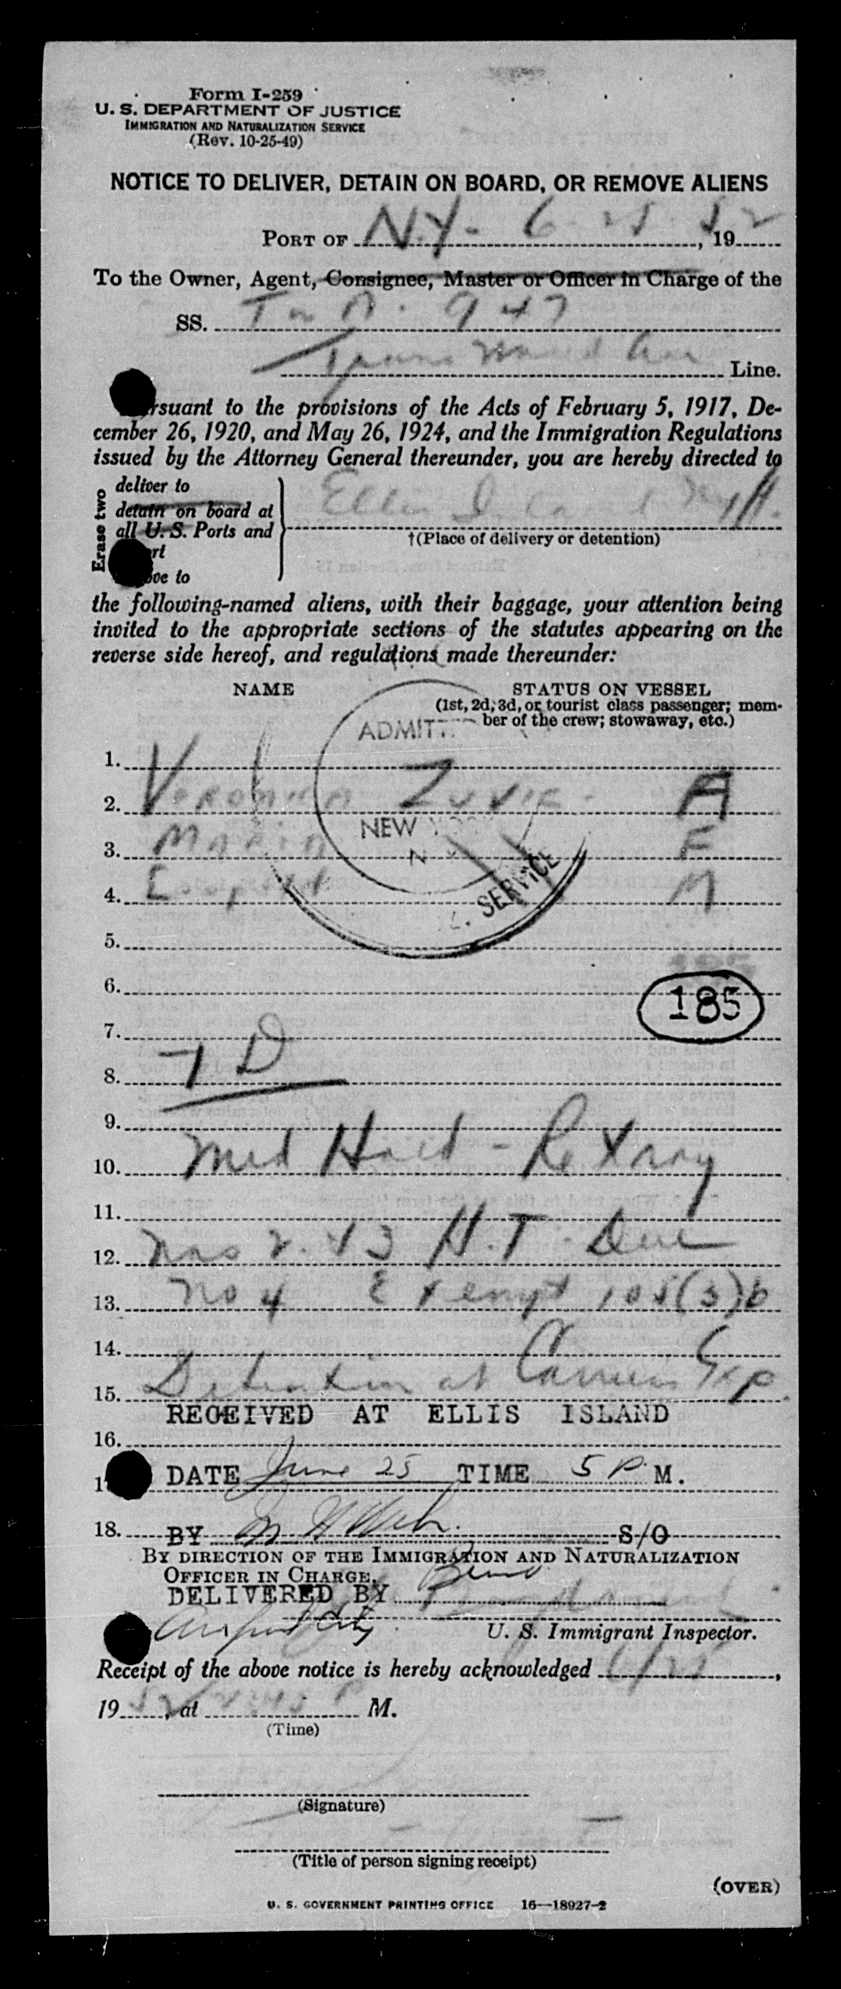 Form I-259
U. S. DEPARTMENT OF JUSTICE
IMMIGRATION AND NATURALIZATION SERVICE
(Rev. 10-25-49)
NOTICE TO DELIVER, DETAIN ON BOARD, OR REMOVE ALIENS
PORT OF N.Y. 6-25-52, 19
To the Owner, Agent, Consignee, Master or Officer in Charge of the
SS. 947
Trans World Air Line.
rsuant to the provisions of the Acts of February 5, 1917, De-
cember 26, 1920, and May 26, 1924, and the Immigration Regulations
issued by the Attorney General thereunder, you are hereby directed to
Erase two
deliver to
detain on board at
all U. S. Ports and
rt
ve to
Ellis Island NYH.
†(Place of delivery or detention)
the following-named aliens, with their baggage, your attention being
invited to the appropriate sections of the statutes appearing on the
reverse side hereof, and regulations made thereunder:
NAME STATUS ON VESSEL
(1st, 2d, 3d, or tourist class passenger; mem-
ber of the crew; stowaway, etc.)
ADMITT
1.
2. Veronika Zuvic - A
NEW YORK
3. Maria F
N Y
4. M
L. SERVICE
5.
6.
185
7.
8. 7 D
9.
10. Med Hold - Re Xray
11.
12. Nos 2. 43 H.T. Due
13. No 4 Exempt 105(3)b
14.
15. Detention at Carriers Exp.
RECEIVED AT ELLIS ISLAND
16.
1
DATE June 25 TIME 5 P. M.
18. BY S/O
BY DIRECTION OF THE IMMIGRATION AND NATURALIZATION
OFFICER IN CHARGE,
DELIVERED BY
U. S. Immigrant Inspector.
Receipt of the above notice is hereby acknowledged 6/25,
19 52, at 4 45 P M.
(Time)
(Signature)
(Title of person signing receipt)
(OVER)
U. S. GOVERNMENT PRINTING OFFICE 16—18927-2